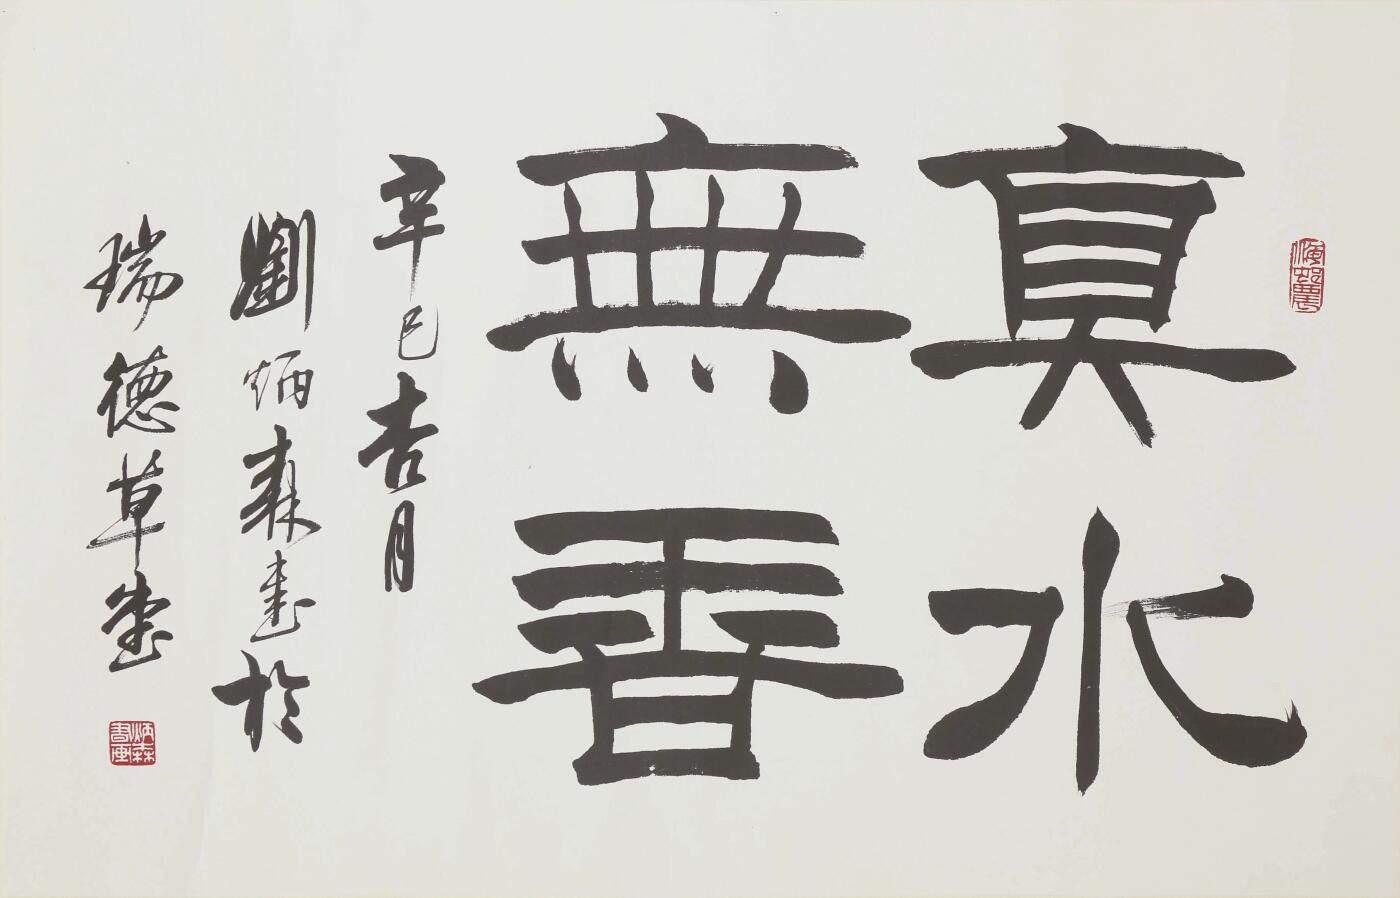 真水
無香
辛巳杏月
劉炳森書於
瑞德草堂
炳森
書画